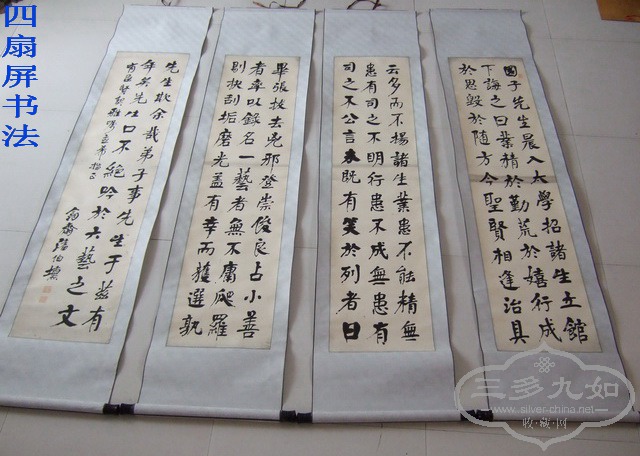 四扇屏书法
國子先生晨入大學招諸生立館
下誨之曰業精於勤荒於嬉行成
於思毀於随方今聖賢相逢治具
畢張拔去兇邪登崇俊良占小善
者率以錄名一藝者無不庸爬羅
剔抉刮垢磨光盖有幸而獲選孰
云多而不揚諸生業患不能精無
患有司之不明行患不成無患有
司之不公言未既有笑於列者曰
先生欺余哉弟子事先生于兹有
年矣先生口不絶吟於六藝之文
三多九如
www.silver-china.net
收·藏·网